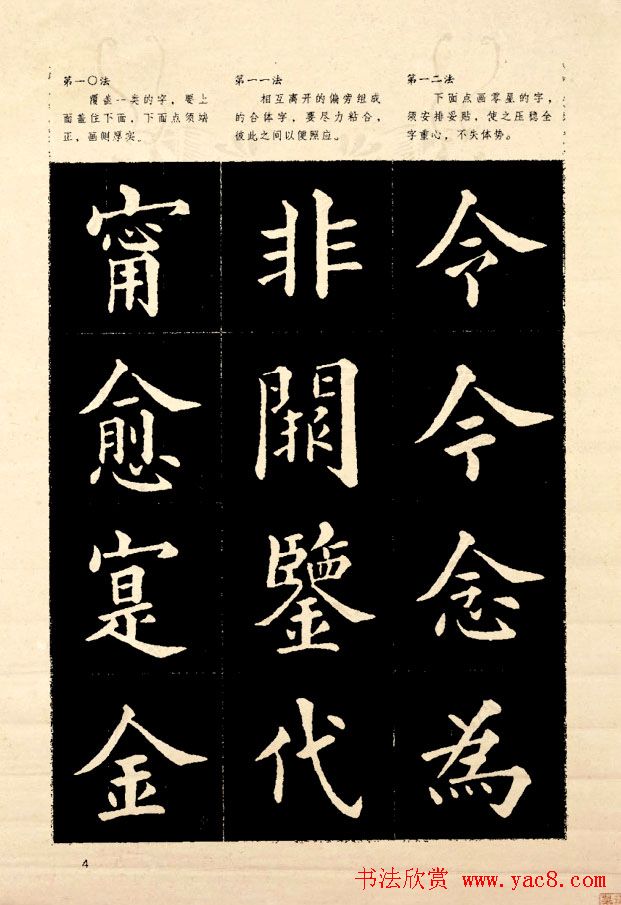 第一〇法
覆盖一类的字，要上
面盖住下面，下面点须端
正，画侧厚实。
第一一法
相互离开的偏旁组成
的合体字，要尽力粘合，
彼此之间以便照应。
第一二法
下面点画零星的字，
须安排妥贴，使之压稳全
字重心，不失体势。
甯 非 令
愈 闢 今
寔 鑒 念
金 代 為
4
书法欣赏 www.yac8.com